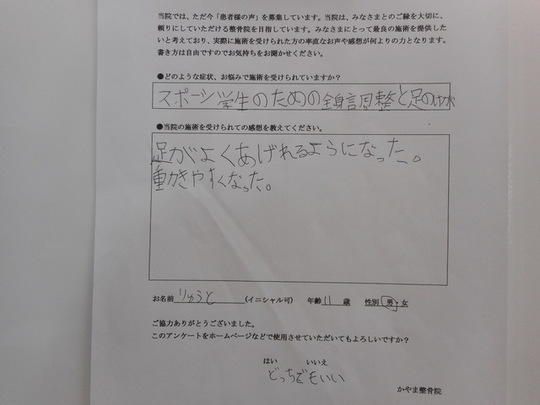 当院では、ただ今「患者様の声」を募集しています。当院は、みなさまとのご縁を大切に、
頼りにしていただける整骨院を目指しています。みなさまにとって最良の施術を提供した
いと考えており、実際に施術を受けられた方の率直なお声や感想が何よりの力となります。
書き方は自由ですのでお気持ちをお聞かせください。
●どのような症状、お悩みで施術を受けられていますか?
スポーツ学生のための全身調整と足のけが
●当院の施術を受けられての感想を教えてください。
足がよくあげれるようになった。
動きやすくなった。
お名前 りゅうと (イニシャル可) 年齢 11 歳 性別 男・女
ご協力ありがとうございました。
このアンケートをホームページなどで使用させていただいてもよろしいですか?
はい いいえ
どっちでもいい
かやま整骨院